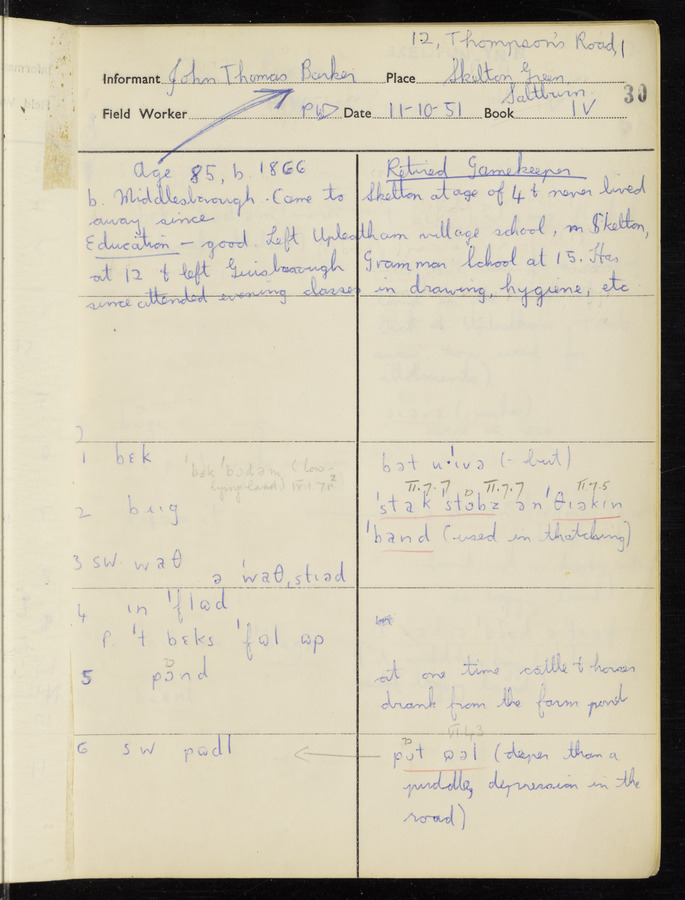 12, Thompson's Road,
Informant John Thomas Barker Place Skelton Green
Saltburn 30
Field Worker PW Date 11-10-51 Book IV
Age 85, b. 1866 Retired Gamekeeper
b. Middlesborough. Came to Skelton at age of 4 & never lived
away since
Education – good. Left Upleatham village school, nr Skelton,
at 12 & left Guisborough Grammar School at 15. Has
since attended evening classes in drawing, hygiene, etc
1 bɛk
ˈbɛk ˈbɔdəm (low-
lying land) IV.1.7
bət (- but)
2 bɹɪg
II.7.7 II.7.7 II.7.5
ˈstak ˈstɔbz ən ˈθɪəkɪn
ˈband (used in thatching)
3 sw. waθ
ə ˈwaθˌstɪəd
4 ɪn ˈflʊd
p. ˈt bɛks ˈfʊl ʊp
5 pɔnd
at one time cattle & horses
drank from the farm pond
6 sw pʊdl
pʊt ʊəl (deeper than a
puddle, depression in the
road)